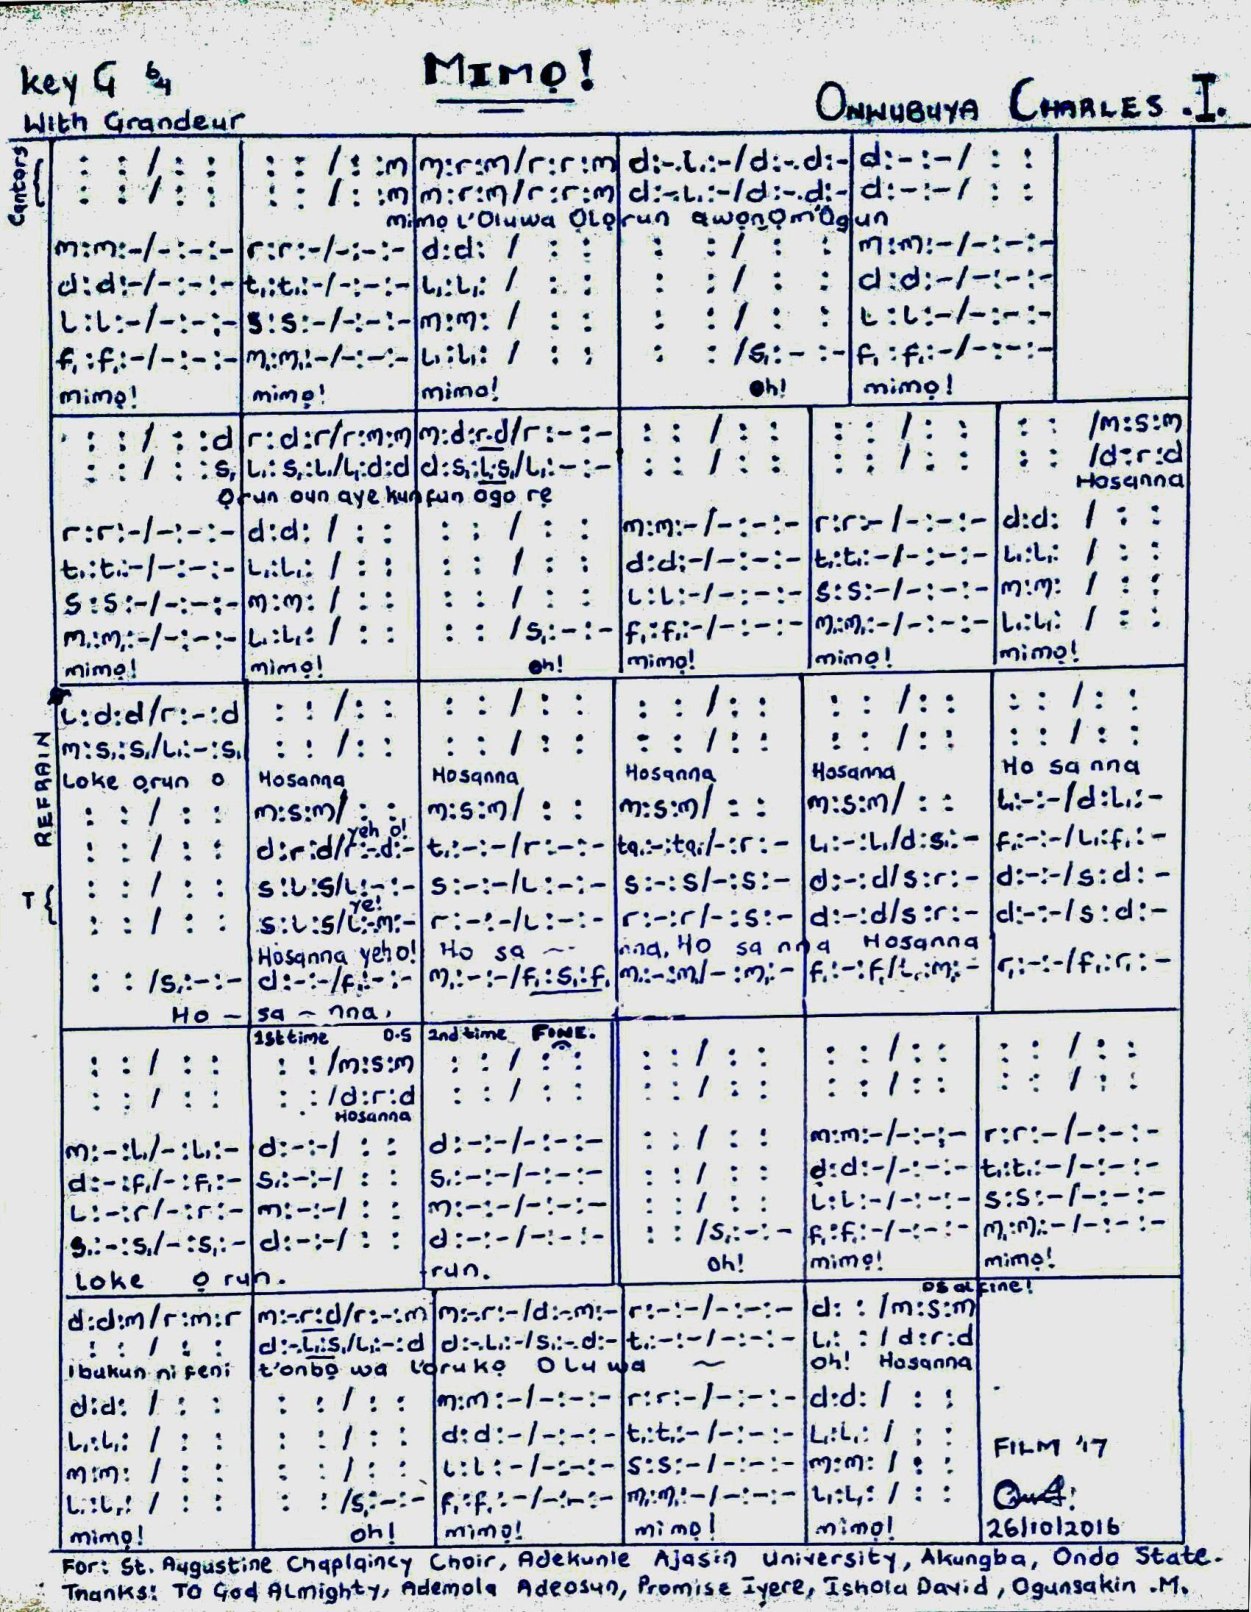 MIMỌ!
key G 6/4
ONWUBUYA CHARLES .I.
With Grandeur
Cantors
: : / : : | : : / : :m | m:r:m/r:r:m | d:-.l₁:-/d:-.d:- | d:-:-/ : :
: : / : : | : : / : :m | m:r:m/r:r:m | d:-.l₁:-/d:-.d:- | d:-:-/ : :
mimọ L'Oluwa Ọlọrun awọn Ọm'Ogun
m:m:-/-:-:- | r:r:-/-:-:- | d:d: / : : | : : / : : | m:m:-/-:-:-
d:d:-/-:-:- | t₁:t₁:-/-:-:- | l₁:l₁: / : : | : : / : : | d:d:-/-:-:-
l:l:-/-:-:- | s:s:-/-:-:- | m:m: / : : | : : / : : | l:l:-/-:-:-
f₁:f₁:-/-:-:- | m₁:m₁:-/-:-:- | l₁:l₁: / : : | : : /s₁:-:- | f₁:f₁:-/-:-:-
mimọ! mimọ! mimọ! oh! mimọ!
: : / : :d | r:d:r/r:m:m | m:d:r.d/r:-:- | : : / : : | : : / : : | : : /m:s:m
: : / : :s₁ | l₁:s₁:l₁/l₁:d:d | d:s₁:l₁.s₁/l₁:-:- | : : / : : | : : / : : | : : /d:r:d
Ọrun oun aye kun fun ogo rẹ Hosanna
r:r:-/-:-:- | d:d: / : : | : : / : : | m:m:-/-:-:- | r:r:-/-:-:- | d:d: / : :
t₁:t₁:-/-:-:- | l₁:l₁: / : : | : : / : : | d:d:-/-:-:- | t₁:t₁:-/-:-:- | l₁:l₁: / : :
s:s:-/-:-:- | m:m: / : : | : : / : : | l:l:-/-:-:- | s:s:-/-:-:- | m:m: / : :
m₁:m₁:-/-:-:- | l₁:l₁: / : : | : : /s₁:-:- | f₁:f₁:-/-:-:- | m₁:m₁:-/-:-:- | l₁:l₁: / : :
mimọ! mimọ! oh! mimọ! mimọ! mimọ!
REFRAIN
l:d:d/r:-:d | : : / : : | : : / : : | : : / : : | : : / : : | : : / : :
m:s₁:s₁/l₁:-:s₁ | : : / : : | : : / : : | : : / : : | : : / : : | : : / : :
Loke ọrun o Hosanna Hosanna Hosanna Hosanna Ho sa nna
: : / : : | m:s:m/ : : | m:s:m/ : : | m:s:m/ : : | m:s:m/ : : | l₁:-:-/d:l₁:-
yeh o!
: : / : : | d:r:d/r:-.d:- | t₁:-:-/r:-:- | ta₁:-:ta₁/-:r:- | l₁:-:l₁/d:s₁:- | f₁:-:-/l₁:f₁:-
T
: : / : : | s:l:s/l:-:- | s:-:-/l:-:- | s:-:s/-:s:- | d:-:d/s:r:- | d:-:-/s:d:-
ye!
: : / : : | s:l:s/l:-.m:- | r:-:-/l:-:- | r:-:r/-:s:- | d:-:d/s:r:- | d:-:-/s:d:-
Hosanna yeh o! Ho sa ~ nna, Ho sa nna Hosanna
: : /s₁:-:- | d:-:-/f₁:-:- | m₁:-:-/f₁:s₁:f₁ | m₁:-:m₁/-:m₁:- | f₁:-:f₁/l₁:m₁:- | r₁:-:-/f₁:r₁:-
Ho - sa - nna,
1st time D.S 2nd time FINE.
: : / : : | : : /m:s:m | : : / : : | : : / : : | : : / : : | : : / : :
: : / : : | : : /d:r:d | : : / : : | : : / : : | : : / : : | : : / : :
Hosanna
m:-:l₁/-:l₁:- | d:-:-/ : : | d:-:-/-:-:- | : : / : : | m:m:-/-:-:- | r:r:-/-:-:-
d:-:f₁/-:f₁:- | s₁:-:-/ : : | s₁:-:-/-:-:- | : : / : : | d:d:-/-:-:- | t₁:t₁:-/-:-:-
l:-:r/-:r:- | m:-:-/ : : | m:-:-/-:-:- | : : / : : | l:l:-/-:-:- | s:s:-/-:-:-
s₁:-:s₁/-:s₁:- | d:-:-/ : : | d:-:-/-:-:- | : : /s₁:-:- | f₁:f₁:-/-:-:- | m₁:m₁:-/-:-:-
Loke ọ run. -run. oh! mimọ! mimọ!
DS al fine!
d:d:m/r:m:r | m:-.r:d/r:-:m | m:-.r:-/d:-.m:- | r:-:-/-:-:- | d: : /m:s:m
: : / : : | d:-.l₁:s₁/l₁:-:d | d:-.l₁:-/s₁:-.d:- | t₁:-:-/-:-:- | l₁: : /d:r:d
Ibukun ni feni t'onbọ wa l'orukọ Oluwa ~ oh! Hosanna
d:d: / : : | : : / : : | m:m:-/-:-:- | r:r:-/-:-:- | d:d: / : :
l₁:l₁: / : : | : : / : : | d:d:-/-:-:- | t₁:t₁:-/-:-:- | l₁:l₁: / : :
m:m: / : : | : : / : : | l:l:-/-:-:- | s:s:-/-:-:- | m:m: / : :
l₁:l₁: / : : | : : /s₁:-:- | f₁:f₁:-/-:-:- | m₁:m₁:-/-:-:- | l₁:l₁: / : :
mimọ! oh! mimọ! mimọ! mimọ!
FILM '17
26/10/2016
For: St. Augustine Chaplaincy Choir, Adekunle Ajasin University, Akungba, Ondo State.
Thanks: To God Almighty, Ademola Adeosun, Promise Iyere, Ishola David, Ogunsakin .M.